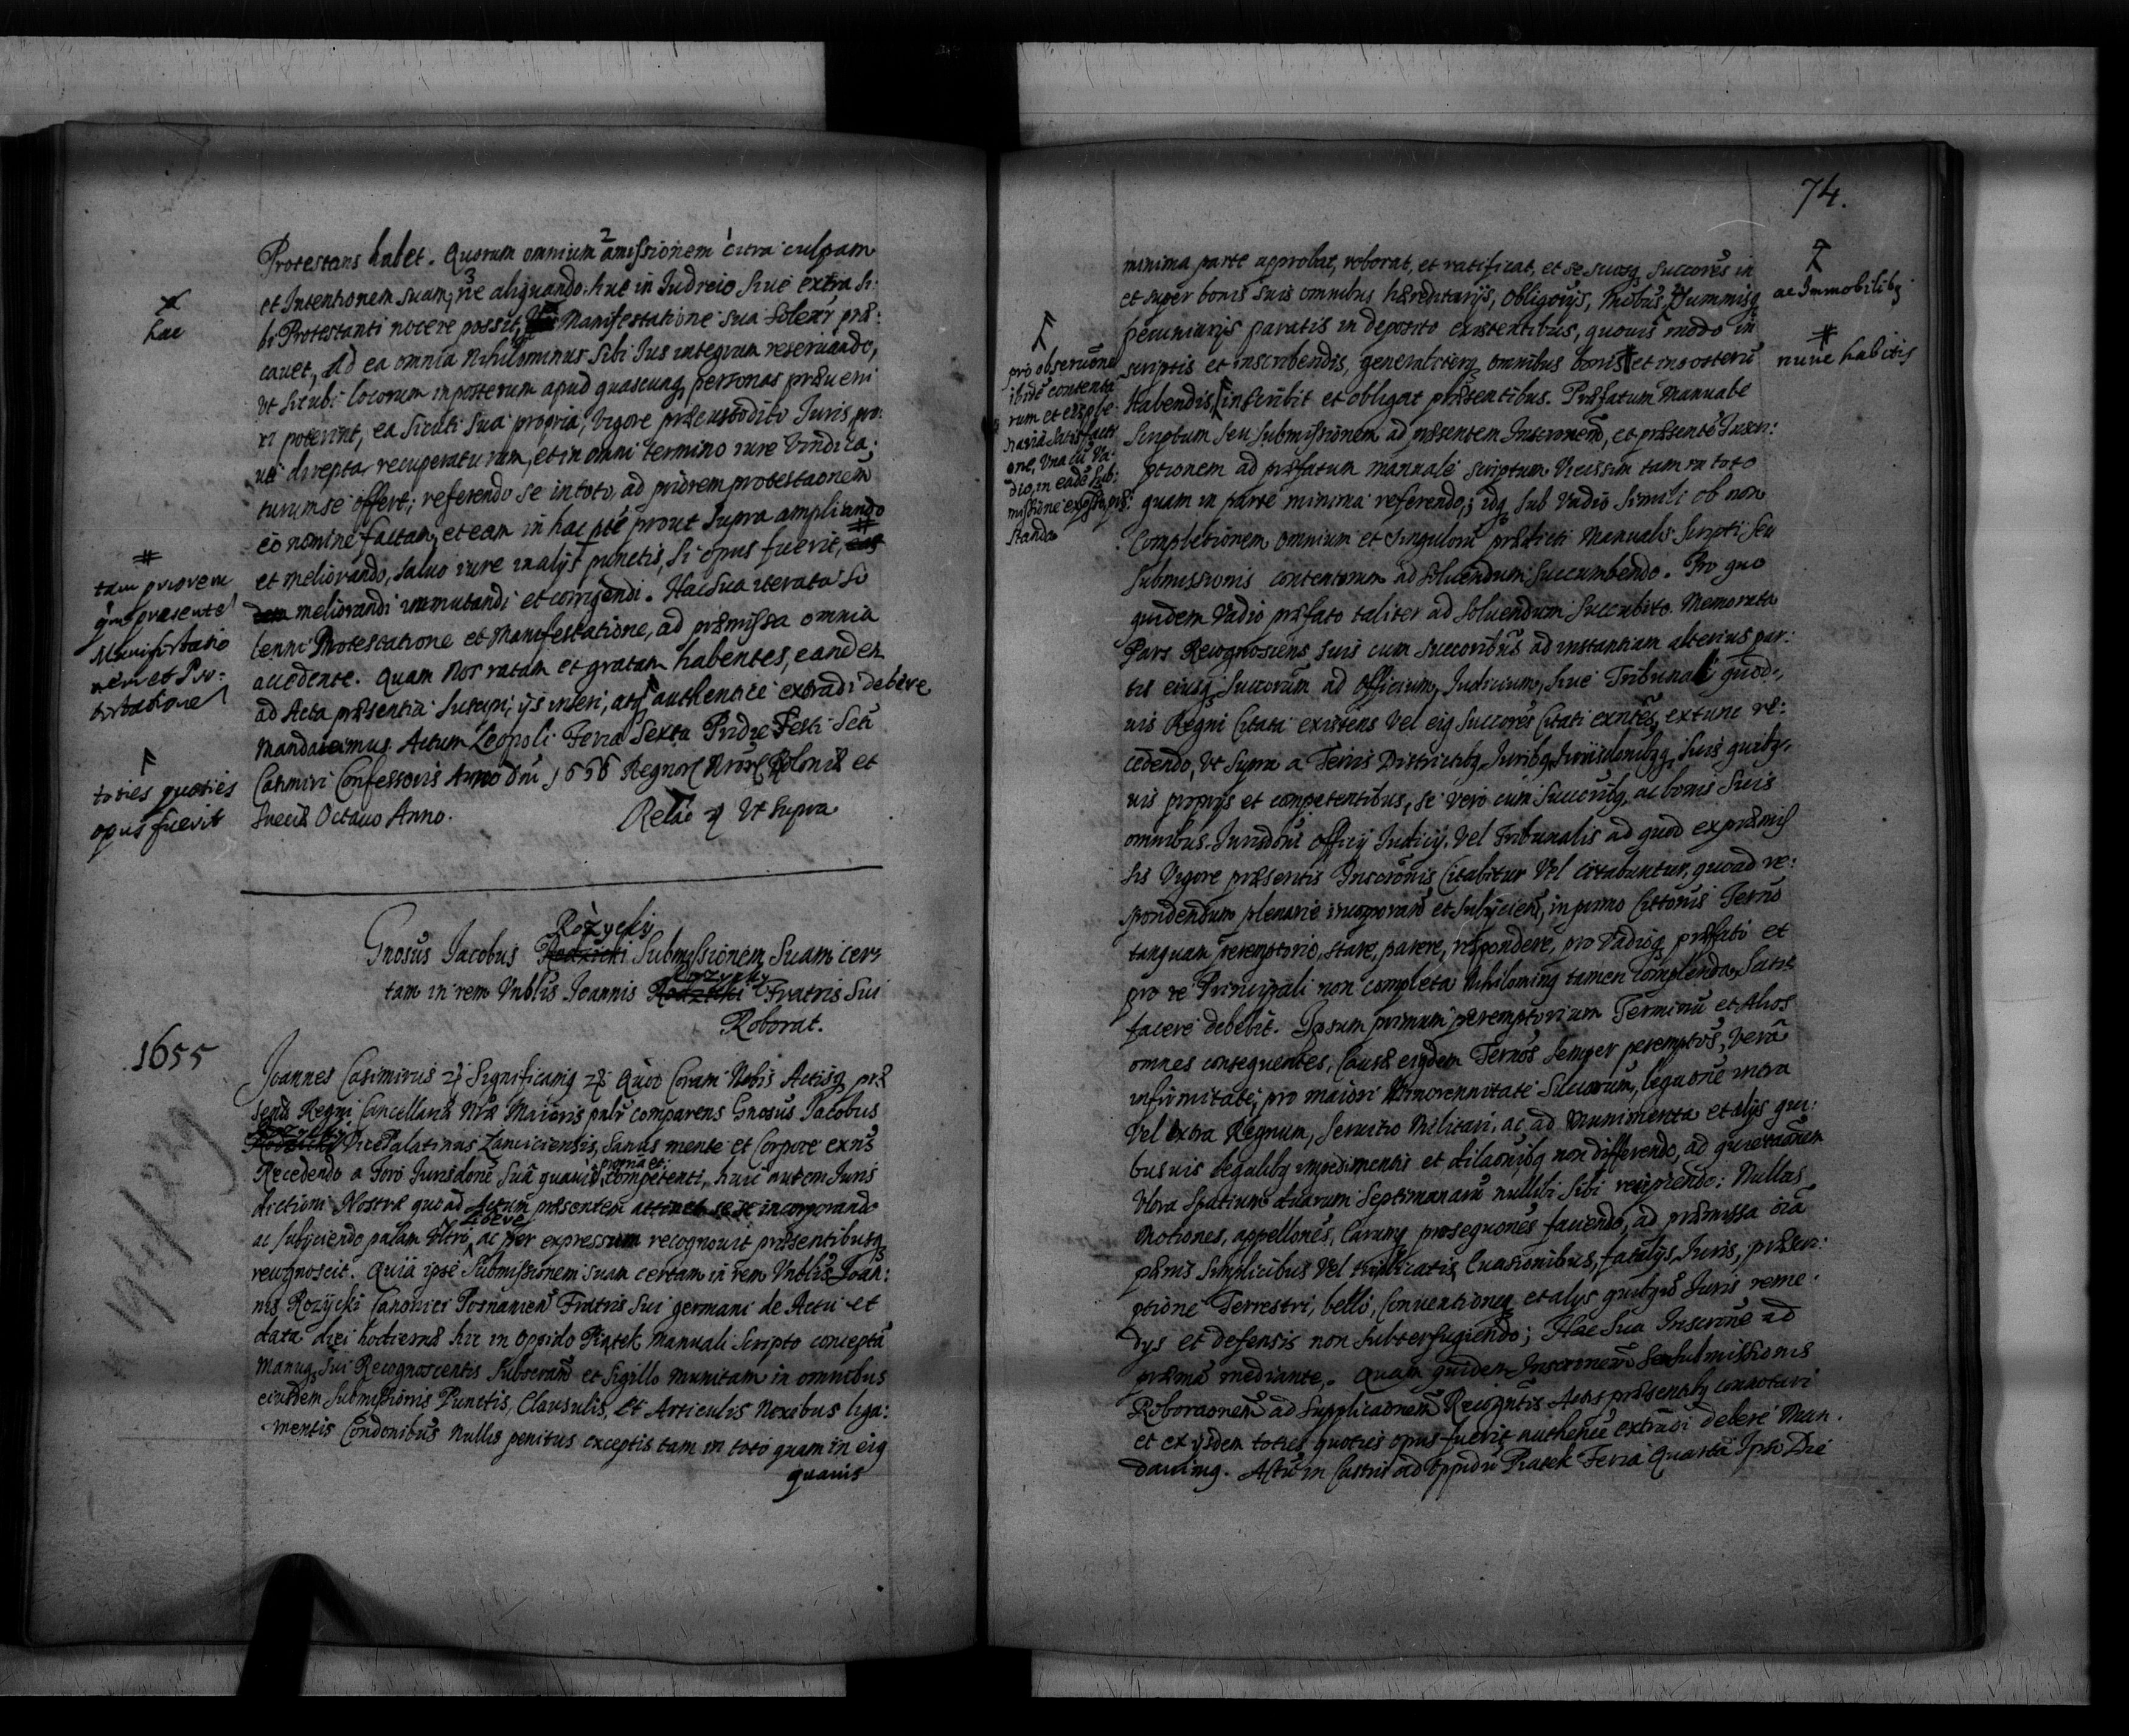 Protestans habet. Quorum omnium amissionem citra culpam
et Intentionem suam, ne aliquando siue in Iudicio siue extra si:
bi Protestanti nocere possit, Manifestatione sua Solenni præ:
cauet, Ad ea omnia Nihilominus sibi Ius integrum reseruando,
Vt sicubi locorum inposterum apud quascunq personas præueni
ri poterint, ea sicuti sua propria, Vigore præcustodito Iuris pro:
ui direpta recuperaturum, et in omni termino iure Vindica:
turum se offert; referendo se in toto, ad priorem protestaonem
eo nomine factam, et eam in hac pte prout supra ampliando
et meliorando, saluo iure in alijs punctis, si opus fuerit,
meliorandi immutandi et corrigendi. Hac sua iterata So
lenni Protestatione et Manifestatione, ad præmissa omnia
accedente. Quam Nos ratam et gratam habentes, eandem
ad Acta præsentia suscipi, ijs inseri, atq authentice extradi debere
mandauimus. Actum Leopoli Feria Sexta Pridie Festi Scti
Casimiri Confessoris Anno Dni 1656 Regnor Nror Poloniæ et
Sueciæ Octauo Anno. Relao Vt supra
hac
tam priorem
qm præsentem
Manifestatio
nem et Pro:
testationem
toties quoties
opus fuerit
Różycky
Gnosus Iacobus Rodzicki Submissionem Suam cer
tam in rem Vnblis Ioannis Rozycky Fratris Sui
Roborat.
1655
Ioannes Casimirus Significamq Quod Coram Nobis Actisq præ
sentis Regni Cancellariæ Nræ Maioris palr comparens Gnosus Iacobus
Rozycki VicePalatinus Lanciciensis, Sanus mente et Corpore exns
Recedendo a Foro Iurisdone Sua quauis propria et competenti, huic autem Iuris
dictioni Nostræ quoad Actum præsentem attinet se se incorporando
ac subijciendo palam Vltro, Libere ac per expressum recognouit præsentibusq
recognoscit. Quia ipse Submissionem suam certam in rem Vnblis Ioan:
nis Rozycki Canonici Posnanien Fratris Sui germani de Actu et
data diei hodiernæ hic in Oppido Piątek Manuali Scripto concepta
Manuq Sui Recognoscentis Subscram et Sigillo munitam in omnibus
eiusdem Submissionis Punctis, Clausulis, et Articulis Nexibus liga:
mentis Condonibus Nullis penitus exceptis tam in toto quam in eiq
quauis
194/29
74.
minima parte approbat, roborat, et ratificat, et se suosq Succores in
et super bonis suis omnibus hæreditarijs, obligorijs, Mobus, Summisq
pecuniarijs paratis in deposito existentibus, quouis modo in
scriptis et inscribendis, generaliterq omnibus bonis et in posterum
habendis, inscribit et obligat præsentibus. Præfatum Manuale
Scriptum seu Submissionem ad præsentem Inscronem, et præsentem Inscri:
ptionem ad præfatum manuale scriptum Vicissim tam in toto
quam in parte minima referendo; idq sub Vadio simili ob non
Completionem omnium et singulorum prædicti Manualis Scripti seu
Submissionis contentorum ad soluendum succumbendo. Pro quo
quidem Vadio præfato taliter ad soluendum succubito. Memorata
Pars Recognoscens suis cum Succoribus ad instantiam alterius par:
tis eiusq Succorum ad Officium, Iudicium, siue Tribunal quod:
uis Regni Citata existens Vel eiq Succores Citati exntes, extunc re:
cedendo, Vt supra a Terris Districtibq Iuribq Iurisdonibqq suis quibq
uis proprijs et competentibus, se vero cum Succoribq, ac bonis suis
omnibus. Iurisdoni Officij Iudicij, Vel Tribunalis ad quod ex præmis
sis Vigore præsentis Inscronis Citabitur Vel Citabuntur, quoad re:
spondendum plenarie incorporando et subijciendo, in primo Cittonis Termo
tanquam peremptorio, stare, parere, respondere, pro Vadisq præfato et
pro re Principali non completa Nihilominq tamen complenda, Satis
facere debebit. Ipsum primum peremptorium Terminum et Alios
omnes consequentes, Causæ eiqdem Termos semper peremptos, Vera
infirmitate, pro maiori Minorennitate Succorum, legaone intra
Vel extra Regnum, Seruitio Militari, ac ad Munimenta et alijs qui:
busuis legalibq impedimentis et dilaonibq non differendo, ad quietaonem
Vltra Spatium duarum Septimanarum nullibi sibi recipiendo: Nullas
Motiones, appellones, earumq prosequones faciendo, ad præmissa oia
pænis simplicibus Vel triplicatis, Euasionibus, fatalijs Iuris, præscri:
ptione Terrestri, bello, Conuentioneq et alijs quibqis Iuris reme:
dys et defensis non Subterfugiendo; Hac sua Inscrone ad
præma mediante. Quam quidem Inscronem seu Submissionis
Roboraonem ad Supplicaonem Recogntis Actis præsentibq connotari
et ex ijsdem toties quoties opus fuerit authentice extradi debere Man.
dauimq. Actum in Castris ad Oppidum Piatek Feria Quarta Ipso Die
ac Immobilibq
nunc habitis
pro obseruone
ibide contento
rum et eisq ple
naria satisfacti
one, Vna cu Va:
dio, in eade Sub:
missione expresso, præ:
standa